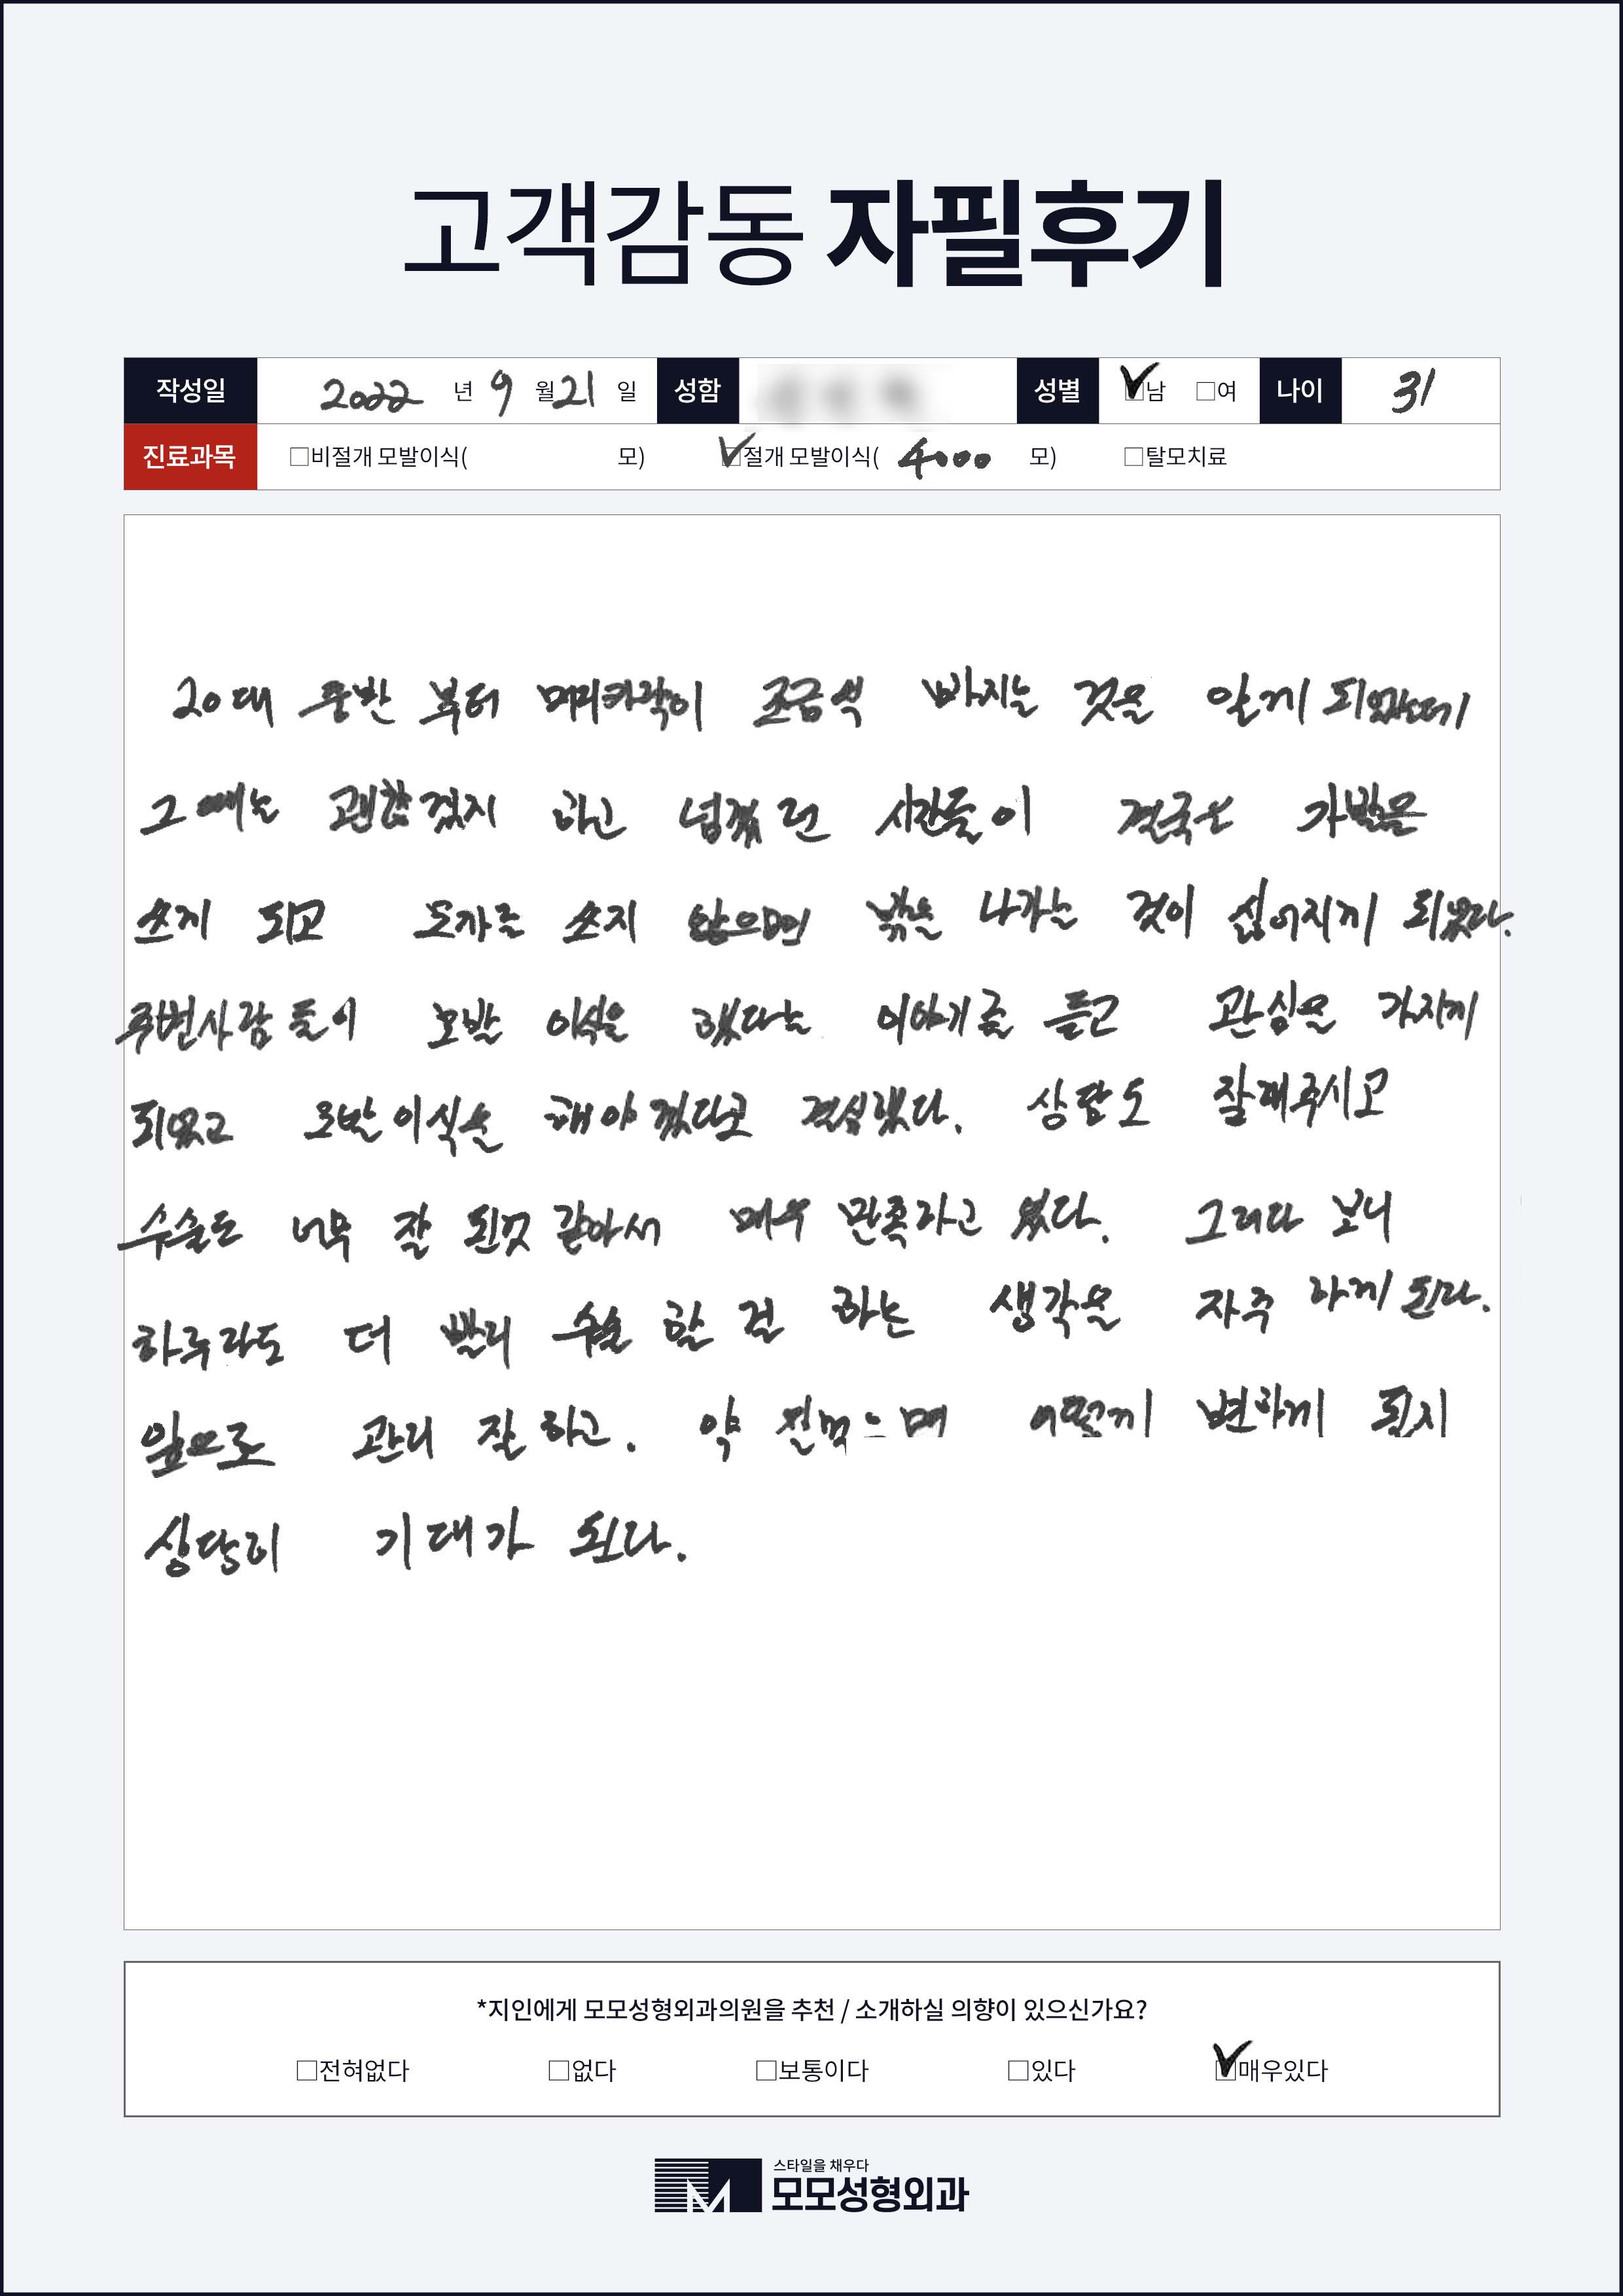 고객감동 자필후기
작성일 2022 년 9 월 21 일 성함 성별 ☑남 □여 나이 31
진료과목 □비절개 모발이식( 모) ☑절개 모발이식( 4000 모) □탈모치료
20대 중반 부터 머리카락이 조금씩 빠지는 것을 알게 되었는데
그때는 괜찮겠지 하고 넘겼던 시간들이 결국은 가발을
쓰게 되고 모자를 쓰지 않으면 밖을 나가는 것이 싫어지게 되었다.
주변사람들이 모발 이식을 했다는 이야기를 듣고 관심을 가지게
되었고 모발이식을 해야겠다고 결심했다. 상담도 잘해주시고
수술도 너무 잘 된것 같아서 매우 만족하고 있다. 그러다 보니
하루라도 더 빨리 수술 할 걸 하는 생각을 자주 하게 된다.
앞으로 관리 잘 하고. 약 잘 먹으며 어떻게 변하게 될지
상당히 기대가 된다.
*지인에게 모모성형외과의원을 추천 / 소개하실 의향이 있으신가요?
□전혀없다 □없다 □보통이다 □있다 ☑매우있다
스타일을 채우다
모모성형외과